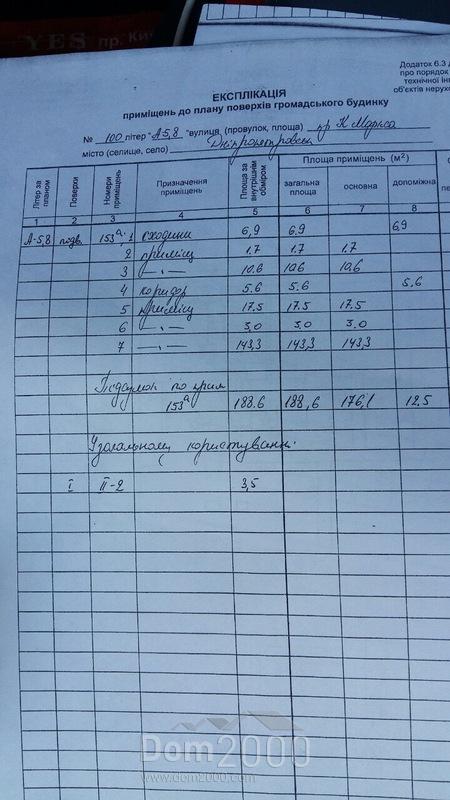 YES пр. Ки
Додаток 6.3 д
про порядок
технічної інв
об'єктів нерухо
ЕКСПЛІКАЦІЯ
приміщень до плану поверхів громадського будинку
№ 100 літер "А-5,8" вулиця (провулок, площа) пр К Маркса
місто (селище, село) Дніпропетровськ
Літер за планом Поверхи Номери приміщень Призначення приміщень Площа за внутрішнім обміром Площа приміщень (м²)
загальна площа основна допоміжна
1 2 3 4 5 6 7 8
А-5,8 подв. 153а; 1 сходини 6,9 6.9 6,9
2 приміщ 1.7 1.7 1.7
3 —„— 10.6 10.6 10,6
4 коридор 5.6 5.6 5.6
5 приміщ 17.5 17.5 17.5
6 —„— 3,0 3,0 3,0
7 —„— 143,3 143,3 143,3
Підсумок по прим
153а 188.6 188,6 176,1 12.5
У загальному користуванні.
I II-2 3,5
Dom2000
www.dom2000.com